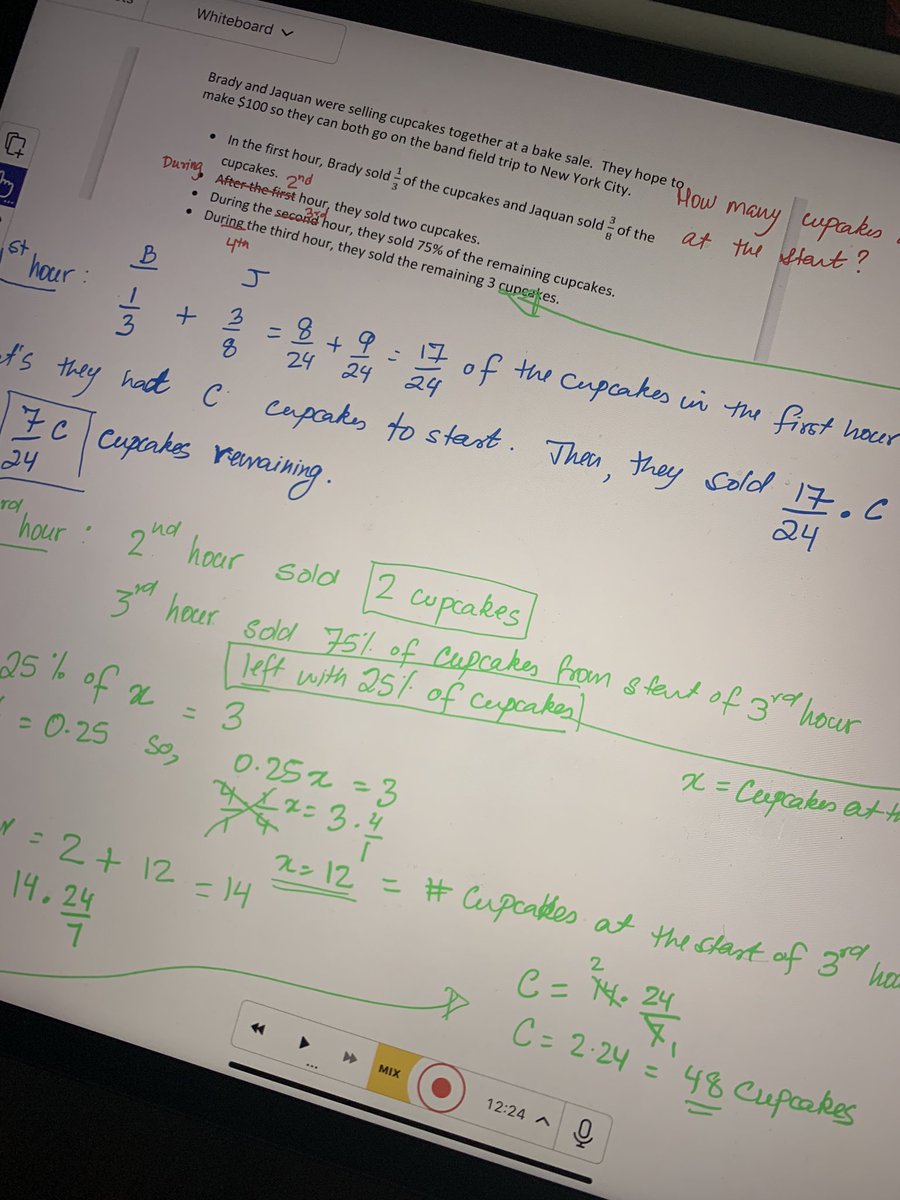 Whiteboard
Brady and Jaquan were selling cupcakes together at a bake sale. They hope to
make $100 so they can both go on the band field trip to New York City.
How many cupcakes
at the start?
• In the first hour, Brady sold 1/3 of the cupcakes and Jaquan sold 3/8 of the
cupcakes.
During 2nd
• After the first hour, they sold two cupcakes.
3rd
• During the second hour, they sold 75% of the remaining cupcakes.
• During the third hour, they sold the remaining 3 cupcakes.
4th
st hour: B J
1/3 + 3/8 = 8/24 + 9/24 = 17/24 of the cupcakes in the first hour
they had C cupcakes to start. Then, they sold 17/24 · C
7/24 C cupcakes remaining.
rd hour: 2nd hour sold 2 cupcakes
3rd hour sold 75% of cupcakes from start of 3rd hour
left with 25% of cupcakes
25% of x = 3
x = Cupcakes at
= 0.25 so, 0.25x = 3
4/1 · 1/4 x = 3 · 4/1
x = 12 = # Cupcakes at the start of 3rd
= 2 + 12 = 14
14 · 24/7
2
C = 14 · 24/7 1
C = 2·24 = 48 Cupcakes
MIX
12:24